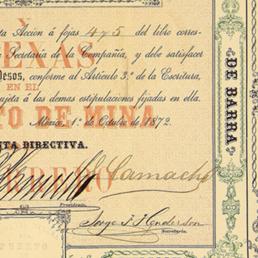 ta Acción á fojas 475 del libro corres-
Secretaría de la Compañía, y debe satisfacer
Pesos, conforme al Artículo 3.º de la Escritura,
EN EL
ujeta á las demas estipulaciones fijadas en ella.
TO DE MINE
México, 1.º de Octubre de 1872.
NTA DIRECTIVA.
RRERO
Camacho
Jorge F. Henderson
Secretario.
DE BARRA